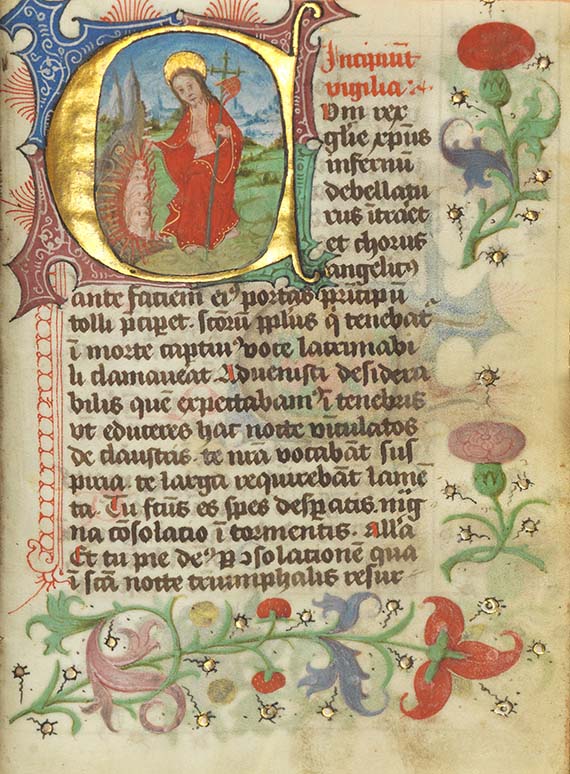 Incipiūt
vigilia:
Um rex
glīe xp̄us
infernū
debellatu
rus ītraēt
et chorus
angelicꝰ
ante faciem eiꝰ portas prīcipū
tolli p̄ciꝑet. scōrū ppl̄us q̄ tenebat᷑
ī morte captiuꝰ voce lacrimabi
li clamaueat. Aduenisti desidera
bilis quē expectabamꝰ ī tenebris
vt educeres hac nocte vīculatos
de claustris. te nr̄a vocabāt sus
piria. te larga requirebāt lamē
ta. Tu fc̄us es spes despatis. m̄g
na cōsolacio ī tormentis. All̄a
Et tu pie deꝰ ꝑ ↄsolationē qua
ī scā nocte triumphalis resur